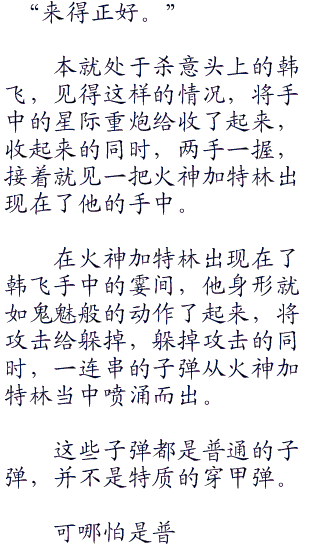 “来得正好。”
本就处于杀意头上的韩
飞，见得这样的情况，将手
中的星际重炮给收了起来，
收起来的同时，两手一握，
接着就见一把火神加特林出
现在了他的手中。
在火神加特林出现在了
韩飞手中的霎间，他身形就
如鬼魅般的动作了起来，将
攻击给躲掉，躲掉攻击的同
时，一连串的子弹从火神加
特林当中喷涌而出。
这些子弹都是普通的子
弹，并不是特质的穿甲弹。
可哪怕是普